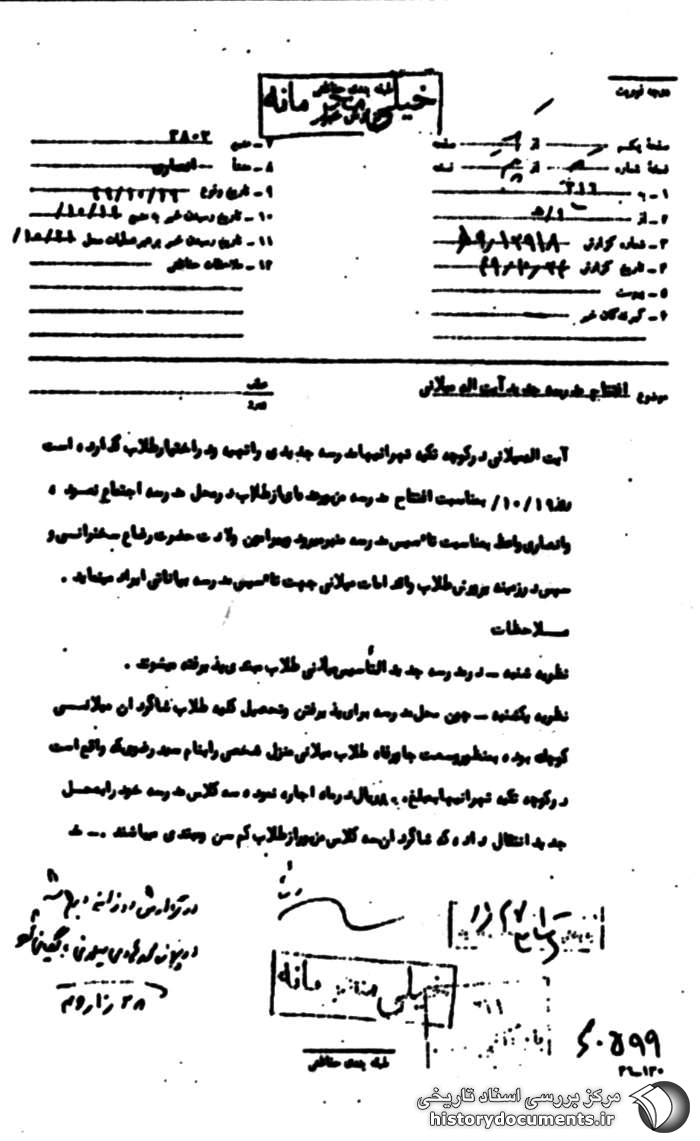 طبقه بندی حفاظتی
خیلی محرمانه
درجه فوریت
صفحه یکم از صفحه
نسخه شماره از نسخه
۱ – به ۳۱۲
۲ – از ۵/۹
۳ – شماره گزارش
۴ – تاریخ گزارش
۵ – پیوست
۶ – گیرندگان خبر
۷ – منبع ۲۸۰۲
۸ – منشأ انصاری
۹ – تاریخ وقوع ۴۹/۱۰/۱۹
۱۰ – تاریخ رسیدن خبر به منبع ۱۰/۱۹/
۱۱ – تاریخ رسیدن خبر به رهبر عملیات محل
۱۲ – ملاحظات حفاظتی
موضوع افتتاح مدرسه جدید آیت اله میلانی
عطف
پیرو
آیت الله میلانی در کوچه تکیه تهرانیها مدرسه جدیدی را تهیه و در اختیار طلاب گذارده است
روز ۱۰/۱۹/ بمناسبت افتتاح مدرسه مزبور عده‌ای از طلاب در محل مدرسه اجتماع نمود ه
و انصاری واعظ بمناسبت تأسیس مدرسه منبر میرود و پیرامون ولادت حضرت رضا ع سخنرانی و
سپس در زمینه پرورش طلاب و اقدامات میلانی جهت تأسیس مدرسه بیاناتی ایراد مینماید .
مـلاحظات
نظریه شنبه – در مدرسه جدید التأسیس میلانی طلاب مبتدی پذیرفته میشوند .
نظریه یکشنبه – چون محل مدرسه برای پذیرفتن و تحصیل کلیه طلاب شاگردان میلانـی
کوچک بوده بمنظور وسعت جا و رفاه طلاب میلانی منزل شخصی را بنام سید رضوی که واقع است
در کوچه تکیه تهرانیها بمبلغ ریال در ماه اجاره نموده سه کلاس مدرسه خود را به محـل
جدید انتقال داده که شاگردان سه کلاس مزبور از طلاب کم سن و مبتدی میباشند .
در گزارش روزانه درج شد
در پرونده میلانی بایگانی شود
خیلی محرمانه
طبقه بندی حفاظتی
۶۰۵۹۹
۲۴–۱۳۰
مرکز بررسی اسناد تاریخی
historydocuments.ir